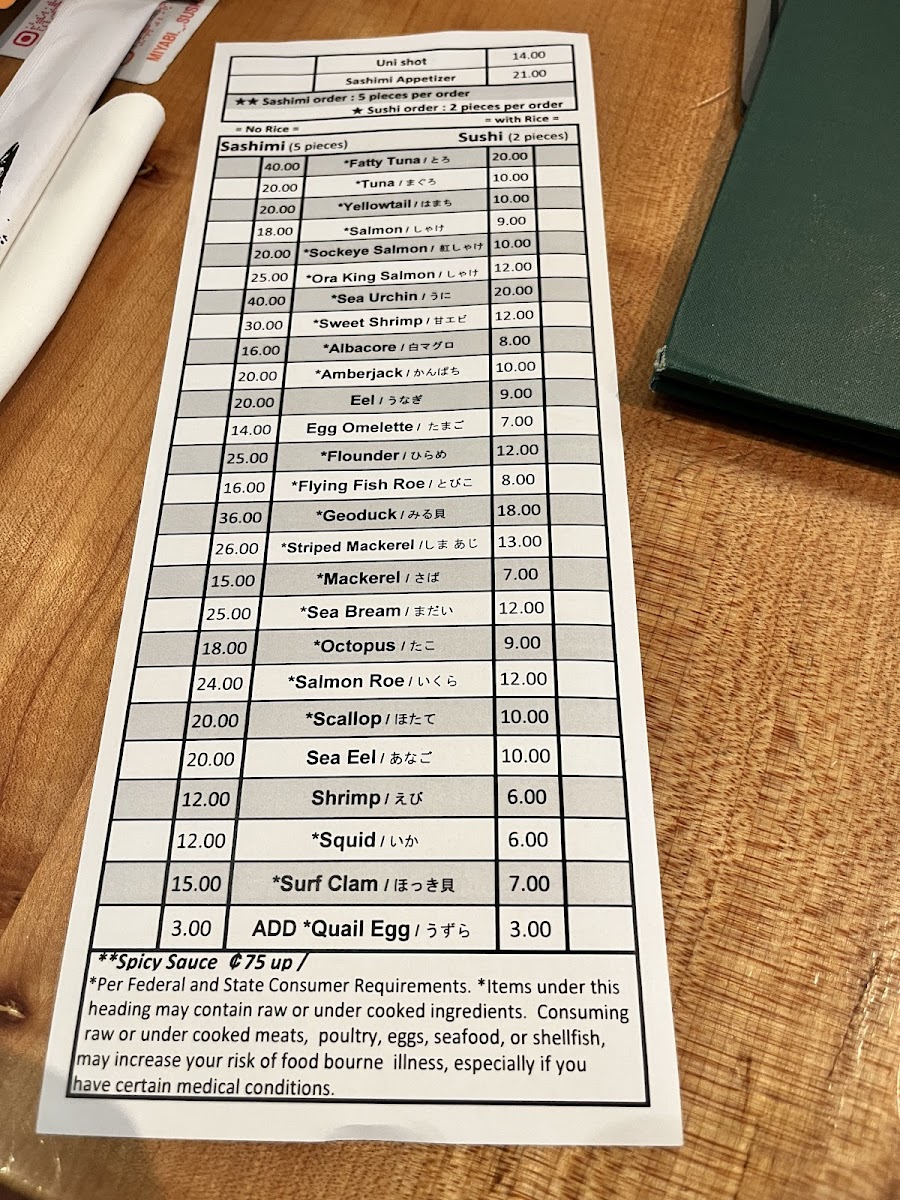 MIYABI_.SUS
Uni shot 14.00
Sashimi Appetizer 21.00
★★ Sashimi order : 5 pieces per order
★ Sushi order : 2 pieces per order
= No Rice = = with Rice =
Sashimi (5 pieces) Sushi (2 pieces)
40.00 *Fatty Tuna / とろ 20.00
20.00 *Tuna / まぐろ 10.00
20.00 *Yellowtail / はまち 10.00
18.00 *Salmon / しゃけ 9.00
20.00 *Sockeye Salmon / 紅しゃけ 10.00
25.00 *Ora King Salmon / しゃけ 12.00
40.00 *Sea Urchin / うに 20.00
30.00 *Sweet Shrimp / 甘エビ 12.00
16.00 *Albacore / 白マグロ 8.00
20.00 *Amberjack / かんぱち 10.00
20.00 Eel / うなぎ 9.00
14.00 Egg Omelette / たまご 7.00
25.00 *Flounder / ひらめ 12.00
16.00 *Flying Fish Roe / とびこ 8.00
36.00 *Geoduck / みる貝 18.00
26.00 *Striped Mackerel /しま あじ 13.00
15.00 *Mackerel / さば 7.00
25.00 *Sea Bream / まだい 12.00
18.00 *Octopus / たこ 9.00
24.00 *Salmon Roe / いくら 12.00
20.00 *Scallop / ほたて 10.00
20.00 Sea Eel / あなご 10.00
12.00 Shrimp / えび 6.00
12.00 *Squid / いか 6.00
15.00 *Surf Clam / ほっき貝 7.00
3.00 ADD *Quail Egg / うずら 3.00
**Spicy Sauce ₵75 up /
*Per Federal and State Consumer Requirements. *Items under this
heading may contain raw or under cooked ingredients. Consuming
raw or under cooked meats, poultry, eggs, seafood, or shellfish,
may increase your risk of food bourne illness, especially if you
have certain medical conditions.